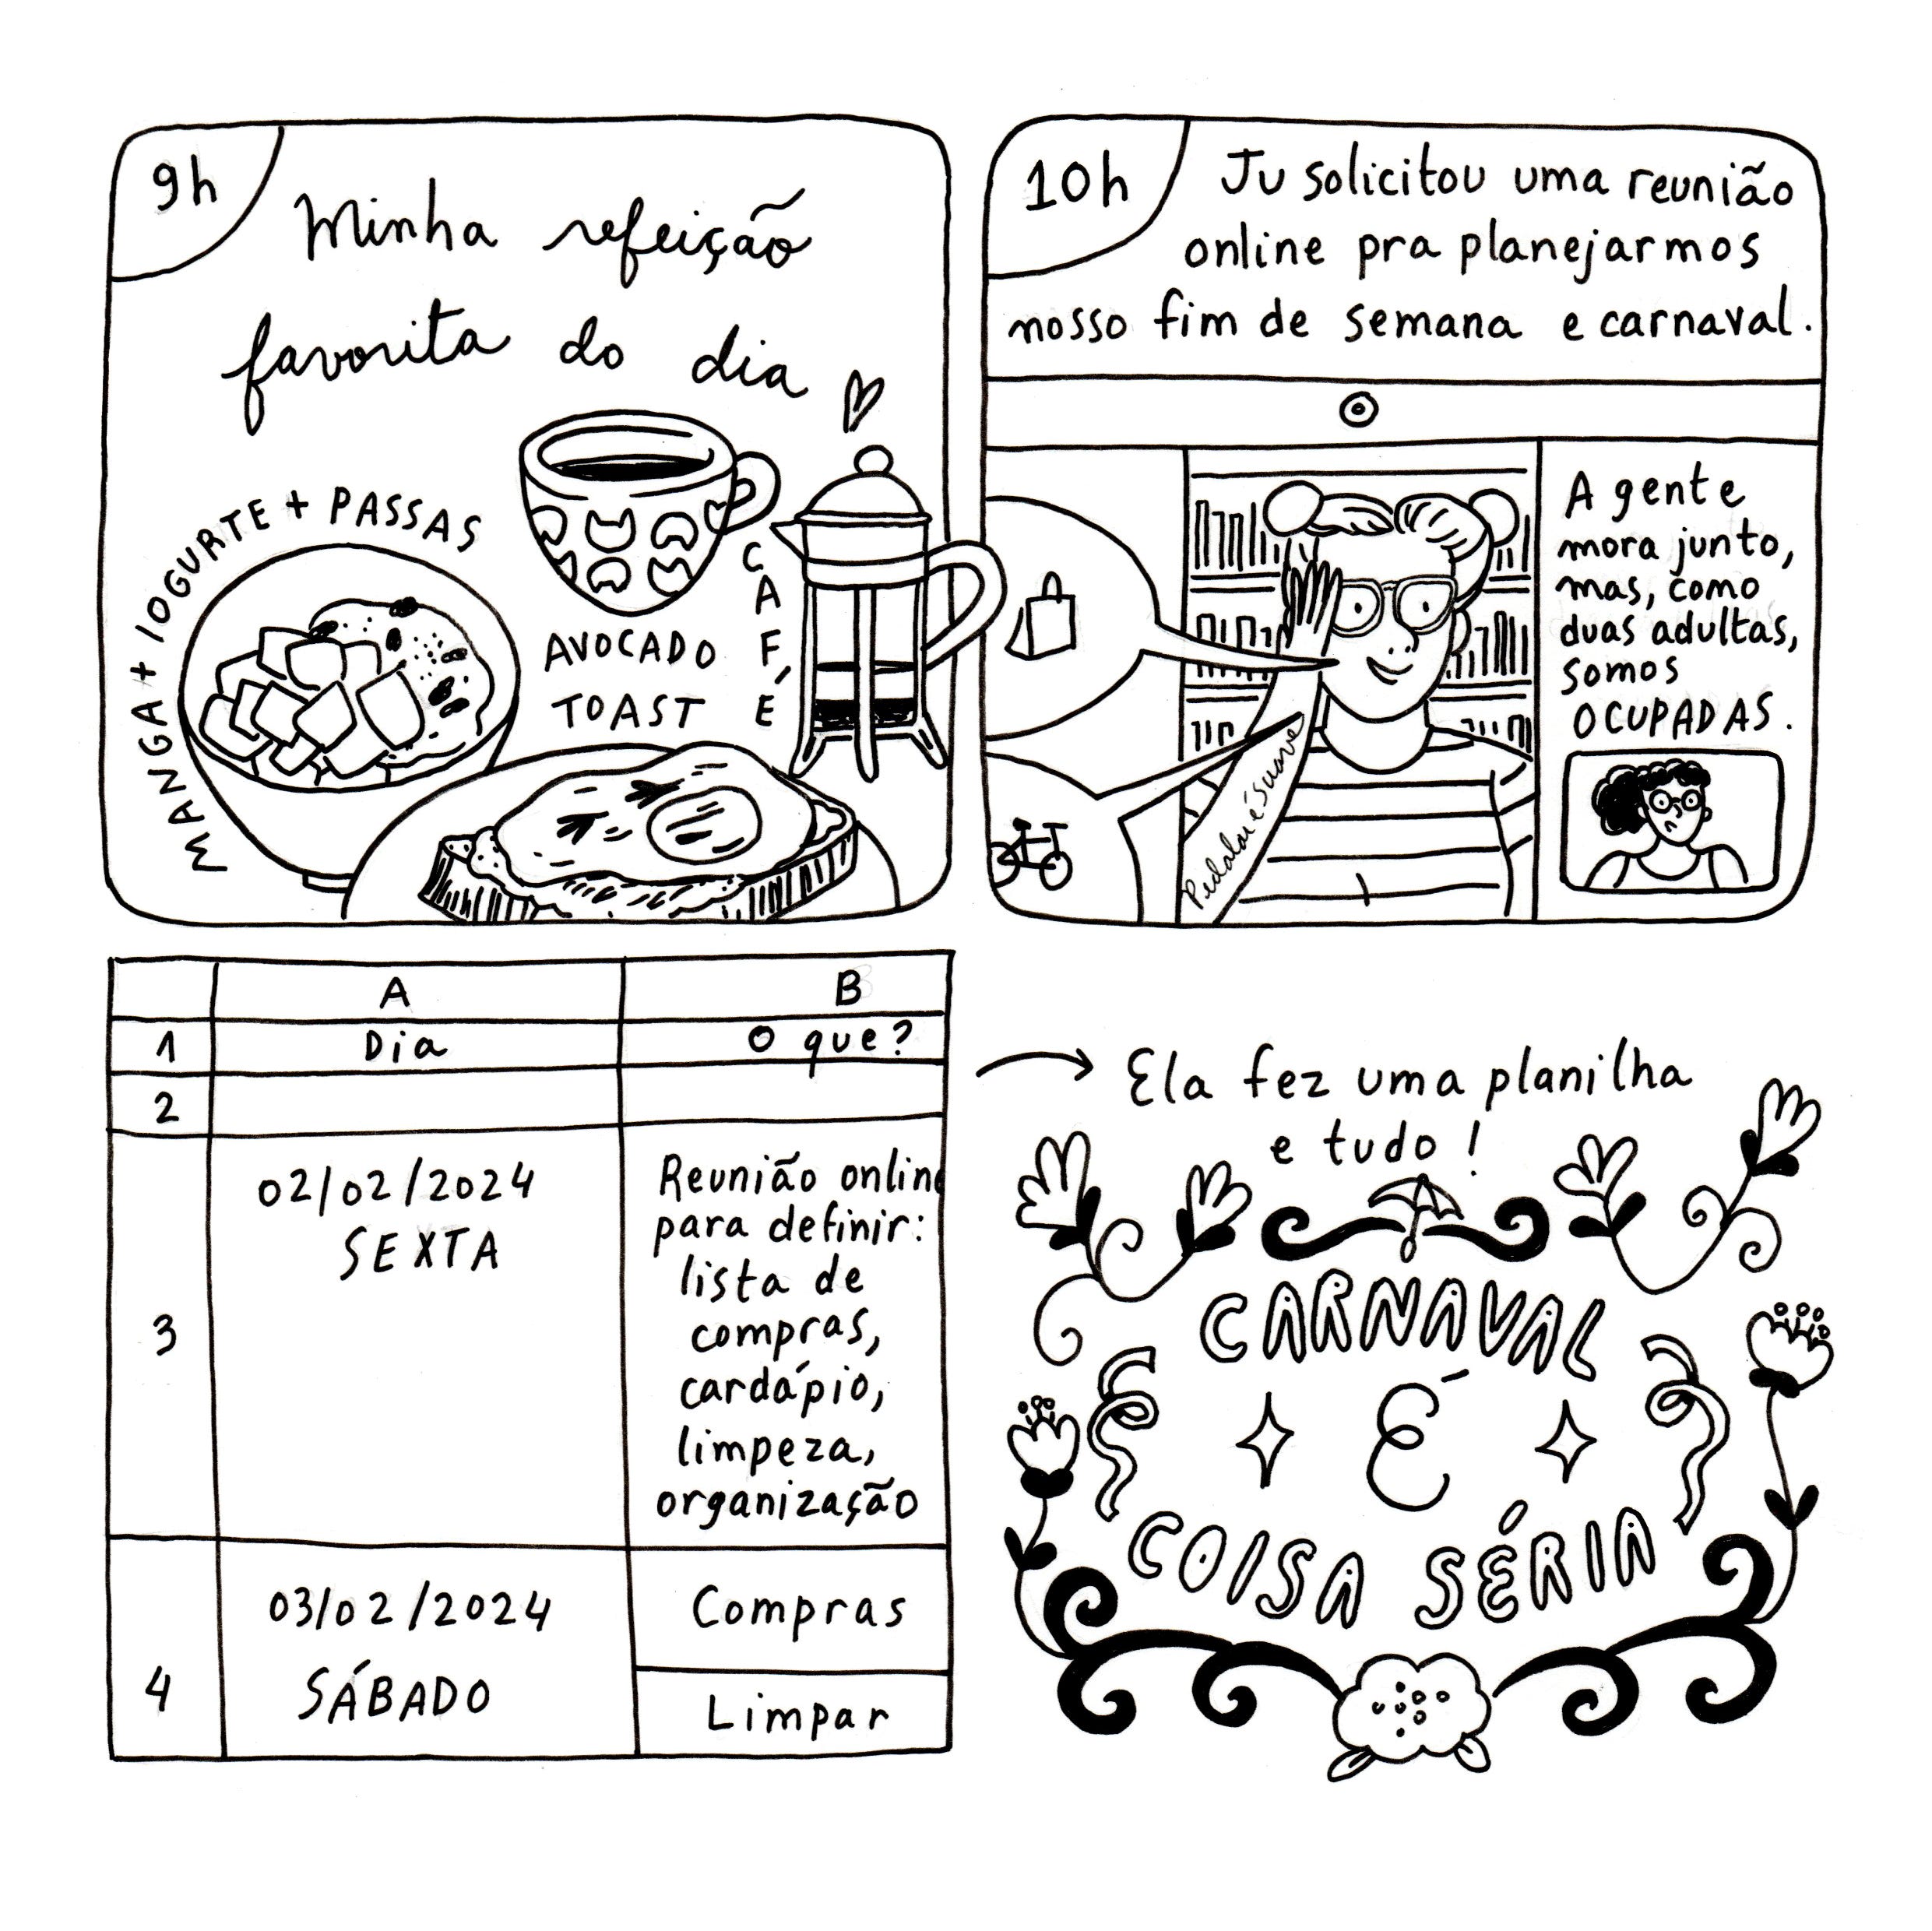 9h
Minha refeição
favorita do dia
MANGA + IOGURTE + PASSAS
CAFÉ
AVOCADO
TOAST
10h
Ju solicitou uma reunião
online pra planejarmos
nosso fim de semana e carnaval.
A gente
mora junto,
mas, como
duas adultas,
somos
OCUPADAS.
Pedalar é suave
A B
1 Dia O que?
2
3
02/02/2024
SEXTA
Reunião online
para definir:
lista de
compras,
cardápio,
limpeza,
organização
4
03/02/2024
SÁBADO
Compras
Limpar
Ela fez uma planilha
e tudo!
CARNAVAL
É
COISA SÉRIA